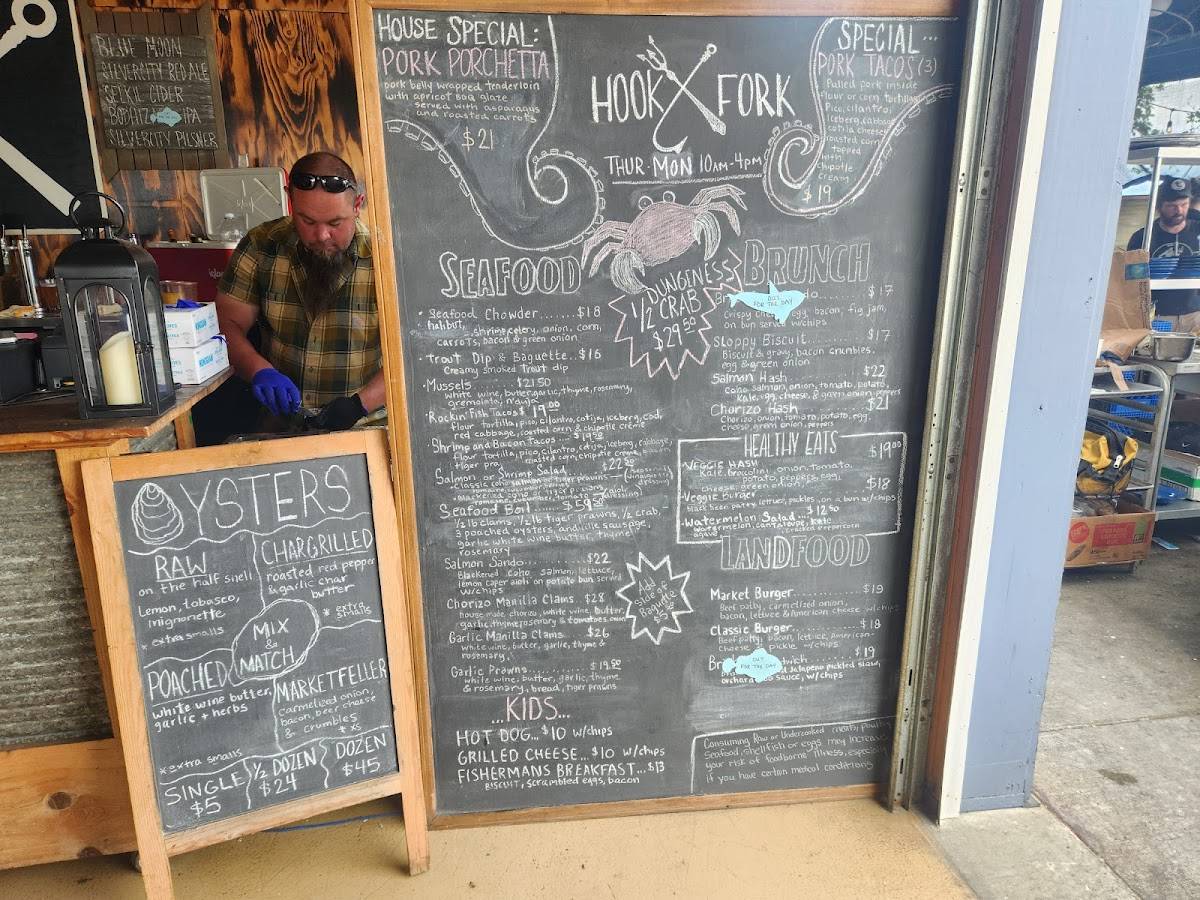 BLUE MOON
SILVERCITY RED ALE
SELKIE CIDER
BODHIZ IPA
SILVERCITY PILSNER
HOUSE SPECIAL:
PORK PORCHETTA
pork belly wrapped tenderloin
with apricot BBQ glaze
served with asparagus
and roasted carrots
$21
HOOK FORK
THUR-MON 10AM-4PM
SPECIAL...
PORK TACOS (3)
Pulled pork inside
flour or corn tortillas
Pico, cilantro,
Iceberg, cabbage
cotija cheese
roasted corn
topped
with
chipotle
cream
$19
SEAFOOD
Seafood Chowder.......$18
halibut, shrimp, celery, onion, corn,
carrots, bacon & green onion
Trout Dip & Baguette..$16
Creamy smoked trout dip
Mussels......$21.50
white wine, butter, garlic, thyme, rosemary,
gremolata, n'duja
Rockin' Fish Tacos $19.00
flour tortilla, pico, cilantro, cotija, iceberg, cod,
red cabbage, roasted corn & chipotle crème
Shrimp and Bacon Tacos....$19.50
flour tortilla, pico, cilantro, cotija, iceberg, cabbage,
tiger pra, roasted corn, chipotle crème
Salmon or Shrimp Salad......$22.50
Seafood Boil......$59.50
1/2 lb clams, 1/2 lb tiger prawns, 1/2 crab,
3 poached oysters, andouille sausage,
garlic white wine butter, thyme
rosemary
Salmon Sando.......$22
Blackened coho salmon, lettuce,
lemon caper aioli on potato bun served
w/chips
Chorizo Manilla Clams..$28
house made chorizo, white wine, butter,
garlic, thyme, rosemary & tomatoes, onion
Garlic Manilla Clams.....$26
white wine, butter, garlic, thyme &
rosemary,
Garlic Prawns..........$19.50
white wine, butter, garlic, thyme
& rosemary, bread, tiger prawns
DUNGENESS
1/2 CRAB
$29.50
Add
side of
Baguette
$5
...KIDS...
HOT DOG...$10 w/chips
GRILLED CHEESE...$10 w/chips
FISHERMANS BREAKFAST...$13
BISCUIT, scrambled eggs, bacon
BRUNCH
Br $17
OUT
FOR THE DAY
Crispy egg, bacon, fig jam,
on bun served w/chips
Sloppy Biscuit $17
Biscuit & gravy, bacon crumbles,
egg & green onion
Salmon Hash $22
coho salmon, onion, tomato, potato,
kale, egg, cheese, & green onion, peppers
Chorizo Hash $21
Chorizo, onion, tomato, potato, egg,
cheese, green onion, peppers
HEALTHY EATS
VEGGIE HASH $19.00
kale, broccolini, onion, tomato,
potato, peppers, egg,
cheese, green onion,
Veggie Burger $18
black bean patty, lettuce, pickles, on a bun w/chips
Watermelon Salad... $12.50
watermelon, cantaloupe, kale
agave cracked peppercorn
LANDFOOD
Market Burger...........$19
Beef patty, carmelized onion,
bacon, lettuce & American cheese w/chips
Classic Burger..........$18
Beef patty, bacon, lettuce, American
cheese & pickle w/chips
Br wich......$19
OUT
FOR THE DAY
jalapeno pickled slaw,
orchard sauce, w/chips
Consuming Raw or Undercooked meats, poultry
Seafood, shellfish or eggs may increase
your risk of foodborne illness, especially
if you have certain medical conditions
OYSTERS
RAW
on the half shell
Lemon, tobasco,
mignonette
* extra smalls
CHARGRILLED
roasted red pepper
& garlic char
butter
* extra
smalls
MIX
&
MATCH
POACHED
white wine butter,
garlic + herbs
* extra smalls
MARKETFELLER
carmelized onion,
bacon, beer cheese
& crumbles
* xs
SINGLE
$5
1/2 DOZEN
$24
DOZEN
$45